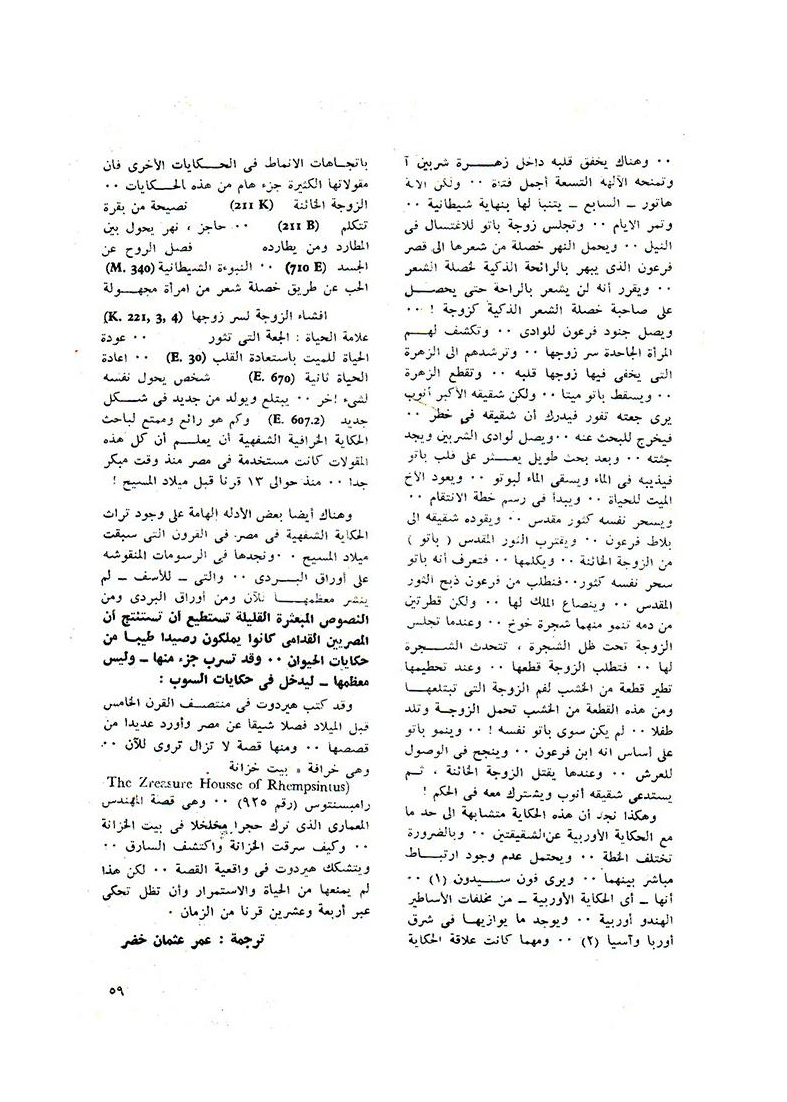 ٠٠ وهناك يخفق قلبه داخل زهـــرة شربين
وتمنحه الآلهه التسعة أجمل فتاة ٠٠ ولكن الالة
هاتور ــ السابع ــ يتنبأ لها بنهاية شيطانية ٠٠
وتمر الايام ٠٠ وتجلس زوجة باتو للاغتسال فى
النيل ٠٠ ويحمل النهر خصلة من شعرها الى قصر
فرعون الذى يبهر بالرائحة الذكية لخصلة الشعر
٠٠ ويقرر أنه لن يشعر بالراحة حتى يحصــل
على صاحبة خصلة الشعر الذكية كزوجة ! ٠٠
ويصل جنود فرعون للوادى ٠٠ وتكشف لهــم
المرأة الجاحدة سر زوجها ٠٠ وترشدهم الى الزهرة
التى يخفى فيها زوجها قلبه ٠٠ وتقطع الزهرة
٠٠ ويسقط باتو ميتا ٠٠ ولكن شقيقه الأكبر أنوب
يرى جعته تفور فيدرك أن شقيقه فى خطر ٠٠
فيخرج للبحث عنه ٠٠ ويصل لوادى الشربين ويجد
جثته ٠٠ وبعد بحث طويل يعــثر على قلب باتو
فيذيبه فى الماء ويسقى الماء لبوتو ٠٠ ويعود الأخ
الميت للحياة ٠٠ ويبدأ فى رسم خطة الانتقام ٠٠
ويسحر نفسه كثور مقدس ٠٠ ويقوده شقيقه الى
بلاط فرعون ٠٠ ويقترب الثور المقدس ( باتو )
من الزوجة الخائنة ٠٠ ويكلمها ٠٠ فتعرف أنه باتو
سحر نفسه كثور٠٠ فتطلب من فرعون ذبح الثور
المقدس ٠٠ وينصاع الملك لها ٠٠ ولكن قطرتين
من دمه تنمو منهما شجرة خوخ ٠٠ وعندما تجلس
الزوجة تحت ظل الشجرة ، تتحدث الشجــرة
لها ٠٠ فتطلب الزوجة قطعها ٠٠ وعند تحطيمها
تطير قطعة من الخشب لفم الزوجة التى تبتلعهــا
ومن هذه القطعة من الخشب تحمل الزوجــة وتلد
طفلا ٠٠ لم يكن سوى باتو نفسه ! ٠٠ وينمو باتو
على أساس انه ابن فرعون ٠٠ وينجح فى الوصول
للعرش ٠٠ وعندها يقتل الزوجة الخائنة ، ثــم
يستدعى شقيقه أنوب ويشترك معه فى الحكم !
وهكذا نجد أن هذه الحكاية متشابهة الى حد ما
مع الحكاية الأوربية عن الشقيقتين ٠٠ وبالضرورة
تختلف الخطة ٠٠ ويحتمل عدم وجود ارتبــاط
مباشر بينهما ٠٠ ويرى فون سيــدون (١) ٠٠
أنها ــ أى الحكاية الأوربية ــ من مخلفات الأساطير
الهندو أوربية ٠٠ ويوجد ما يوازيهــا فى شرق
أوربا وآسيا (٢) ٠٠ ومهما كانت علاقة الحكاية
باتجـاهات الانماط فى الحــكايات الأخرى فان
مقولاتها الكثيرة جزء هام من هذه الحــكايات ٠٠
الزوجة الخائنة (211 K) نصيحة من بقرة
تتكلم (211 B) ٠٠ حاجز ، نهر يحول بين
المطارد ومن يطارده فصل الروح عن
الجسد (710 E) ٠٠ النبوءة الشيطانية (M. 340)
الحب عن طريق خصلة شعر من امرأة مجهــولة
افشاء الزوجة لسر زوجها (K. 221, 3, 4)
علامة الحياة : الجعة التى تثور ٠٠ عودة
الحياة للميت باستعادة القلب (E. 30) ٠٠ اعادة
الحياة ثانية (E. 670) شخص يحول نفسه
لشىء اخر ٠٠ يبتلع ويولد من جديد فى شــكل
جديد (E. 607.2) وكم هو رائع وممتع لباحث
الحكاية الخرافية الشفهية أن يعلــم أن كل هذه
المقولات كانت مستخدمة فى مصر منذ وقت مبكر
جدا ٠٠ منذ حوالى ١٣ قرنا قبل ميلاد المسيح !
وهناك أيضا بعض الأدله الهامة على وجود تراث
الحكاية الشفهية فى مصر فى القرون التى سبقت
ميلاد المسيح ٠٠ ونجدها فى الرسومات المنقوشه
على أوراق البــردى ٠٠ والتى ــ للأسف ــ لم
ينشر معظمهــا للآن ومن أوراق البردى ومن
النصوص المبعثرة القليلة تستطيع أن تستنتج أن
المصريين القدامى كانوا يملكون رصيدا طيبا من
حكايات الحيوان ٠٠ وقد تسرب جزء منها ــ وليس
معظمها ــ ليدخل فى حكايات السوب :
وقد كتب هيردوت فى منتصف القرن الخامس
قبل الميلاد فصلا شيقا عن مصر وأورد عديدا من
قصصها ٠٠ ومنها قصة لا تزال تروى للآن ٠٠
وهى خرافة « بيت خزانة
The Zreasure Housse of Rhempsintus)
رامبسنتوس (رقم ٩٢٥) ٠٠ وهى قصة المهندس
المعمارى الذى ترك حجرا مخلخلا فى بيت الخزانة
٠٠ وكيف سرقت الخزانة واكتشف السارق ٠٠
ويتشكك هيردوت فى واقعية القصة ٠٠ لكن هذا
لم يمنعها من الحياة والاستمرار وأن تظل تحكى
عبر أربعة وعشرين قرنا من الزمان ٠
ترجمة : عمر عثمان خضر
٥٩